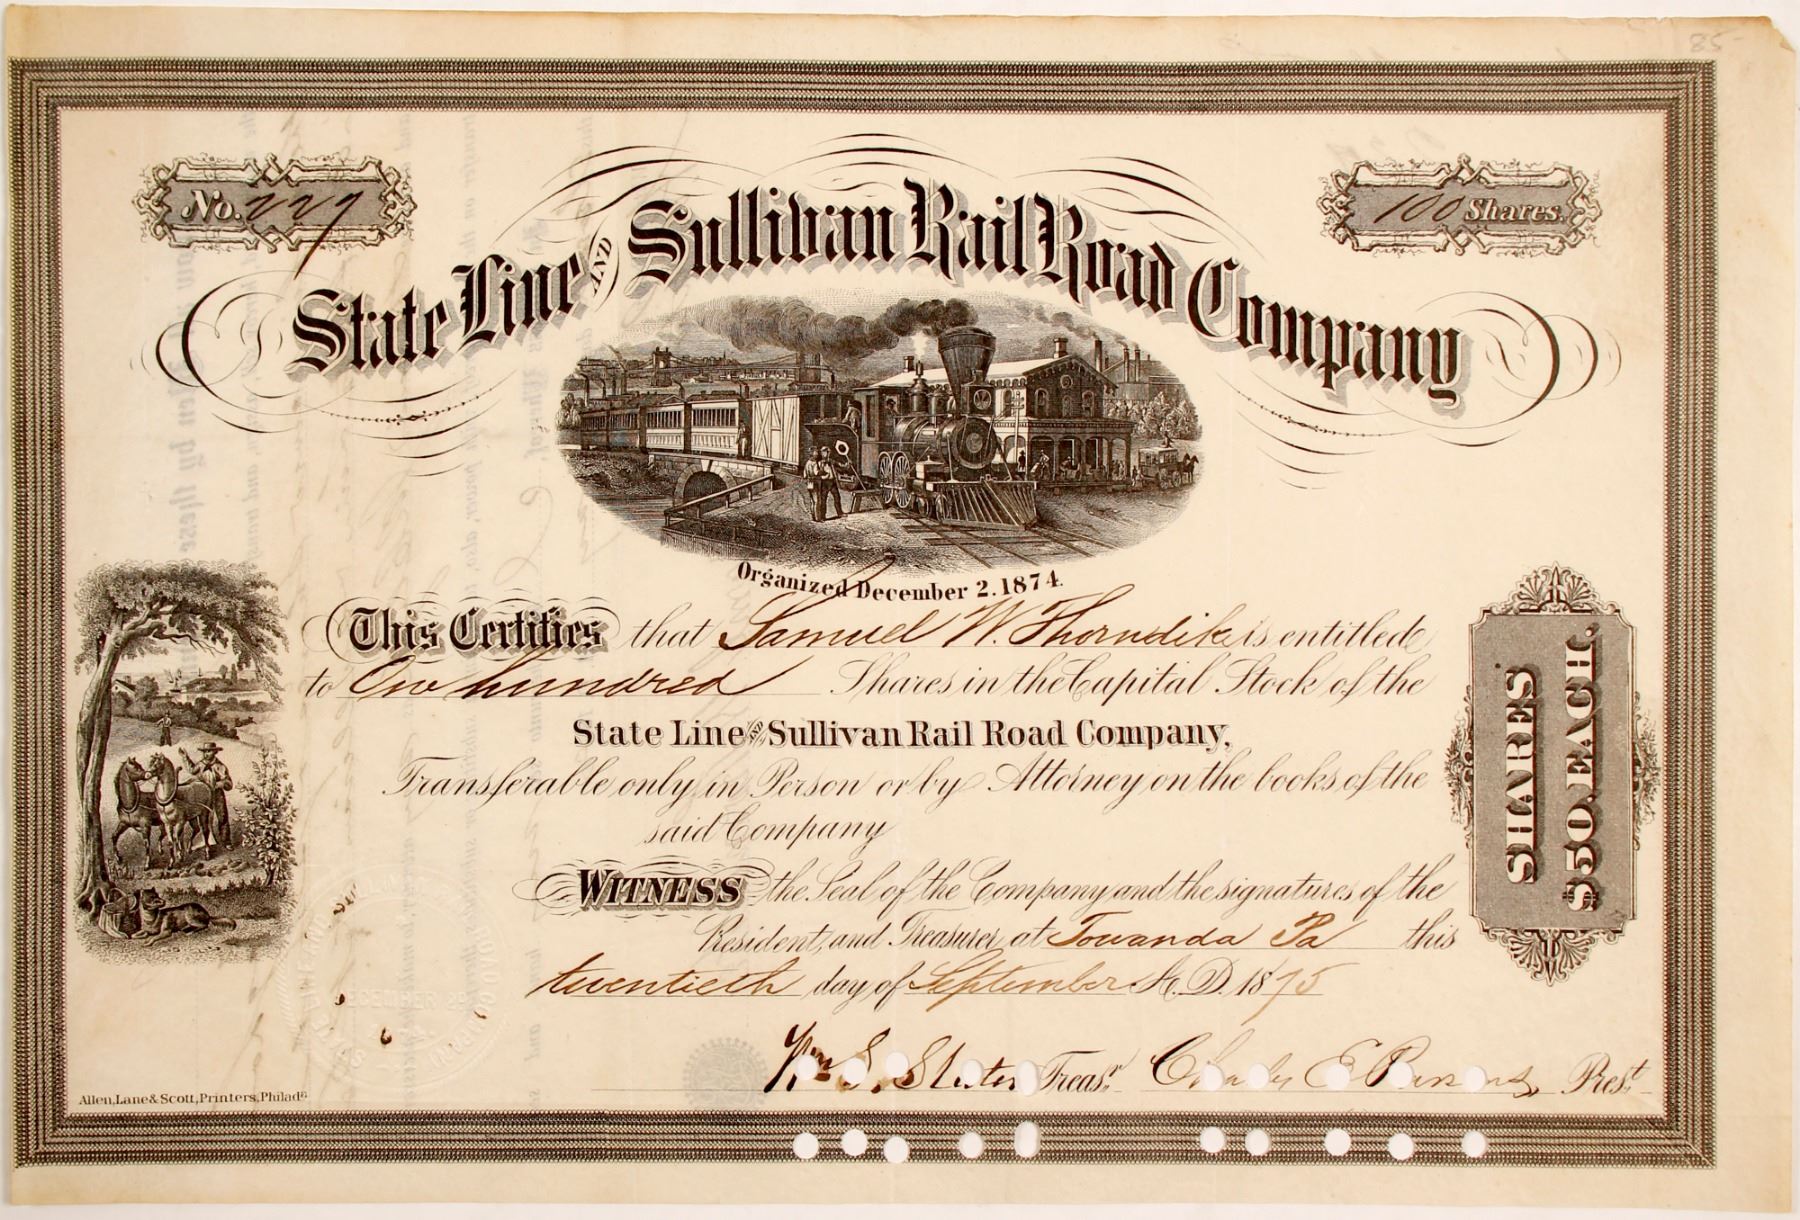 85-
No. 227
100 Shares.
State Line AND Sullivan Rail Road Company
Organized December 2. 1874.
This Certifies that Samuel W. Thorndike is entitled
to One hundred Shares in the Capital Stock of the
State Line AND Sullivan Rail Road Company,
Transferable only in Person or by Attorney on the books of the
said Company
WITNESS the Seal of the Company and the signatures of the
President, and Treasurer at Towanda Pa this
twentieth day of September A.D. 1875
Treasr. Charles E Parsons, Prest.
SHARES
$50. EACH.
Allen, Lane & Scott, Printers, Philada.